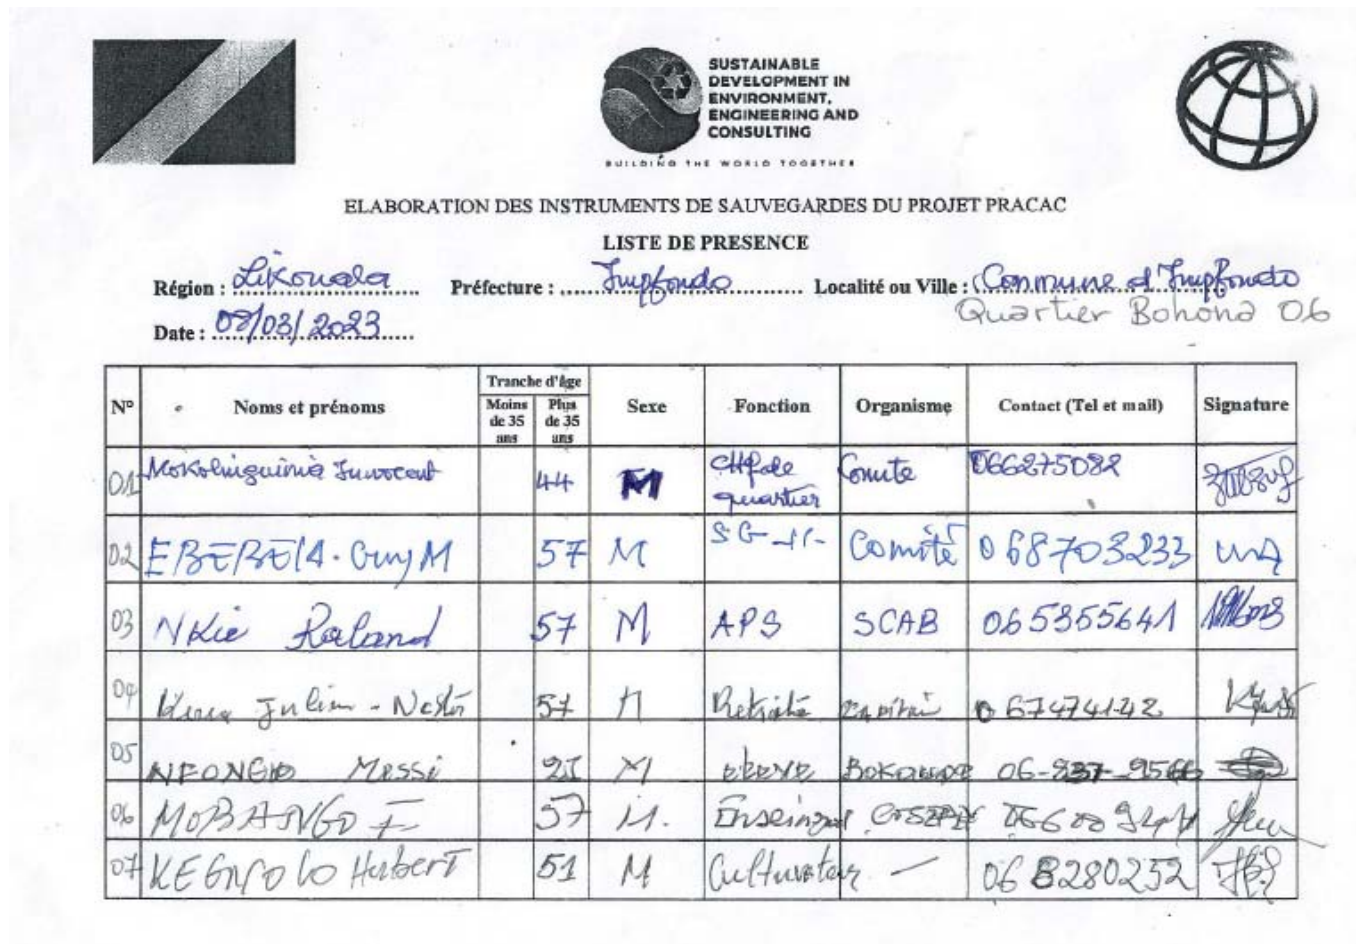 SUSTAINABLE
DEVELOPMENT IN
ENVIRONMENT,
ENGINEERING AND
CONSULTING
BUILDING THE WORLD TOGETHER
ELABORATION DES INSTRUMENTS DE SAUVEGARDES DU PROJET PRACAC
LISTE DE PRESENCE
Région : Likouala Préfecture : Impfondo Localité ou Ville : Commune d'Impfondo
Quartier Bohona 06
Date : 08/03/2023
N° Noms et prénoms Tranche d'âge Moins de 35 ans Plus de 35 ans Sexe Fonction Organisme Contact (Tel et mail) Signature
01 Innocent 44 M Chef de quartier Comite 066275082
02 Guy M 57 M SG Comité 068703233
03 NKie Roland 57 M APS SCAB 065355641
04 Julien - Nestor 57 M Retraité
05 Messi 21 M
06 57 M.
07 Hubert 51 M Cultivateur — 068280252